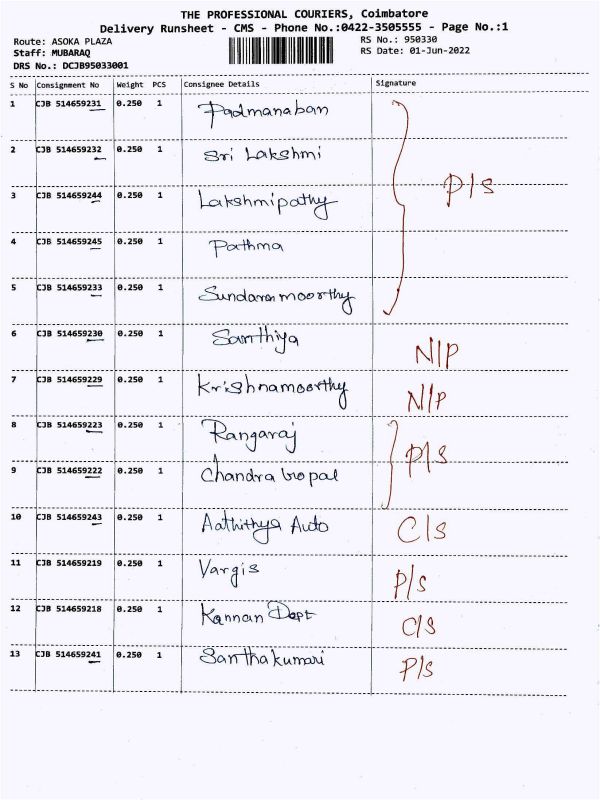 THE PROFESSIONAL COURIERS, Coimbatore
Delivery Runsheet - CMS - Phone No.:0422-3505555 - Page No.:1
Route: ASOKA PLAZA RS No.: 950330
Staff: MUBARAQ RS Date: 01-Jun-2022
DRS No.: DCJB95033001
S No Consignment No Weight PCS Consignee Details Signature
1 CJB 514659231 0.250 1 Padmanaban
2 CJB 514659232 0.250 1 Sri Lakshmi
P/S
3 CJB 514659244 0.250 1 Lakshmipathy
4 CJB 514659245 0.250 1 Pathma
5 CJB 514659233 0.250 1 Sundaramoorthy
6 CJB 514659230 0.250 1 Santhiya N/P
7 CJB 514659229 0.250 1 Krishnamoorthy N/P
8 CJB 514659223 0.250 1 Rangaraj P/S
9 CJB 514659222 0.250 1 Chandra Gopal
10 CJB 514659243 0.250 1 Aathithya Auto C/S
11 CJB 514659219 0.250 1 Vargis P/S
12 CJB 514659218 0.250 1 Kannan Dept C/S
13 CJB 514659241 0.250 1 Santhakumari P/S